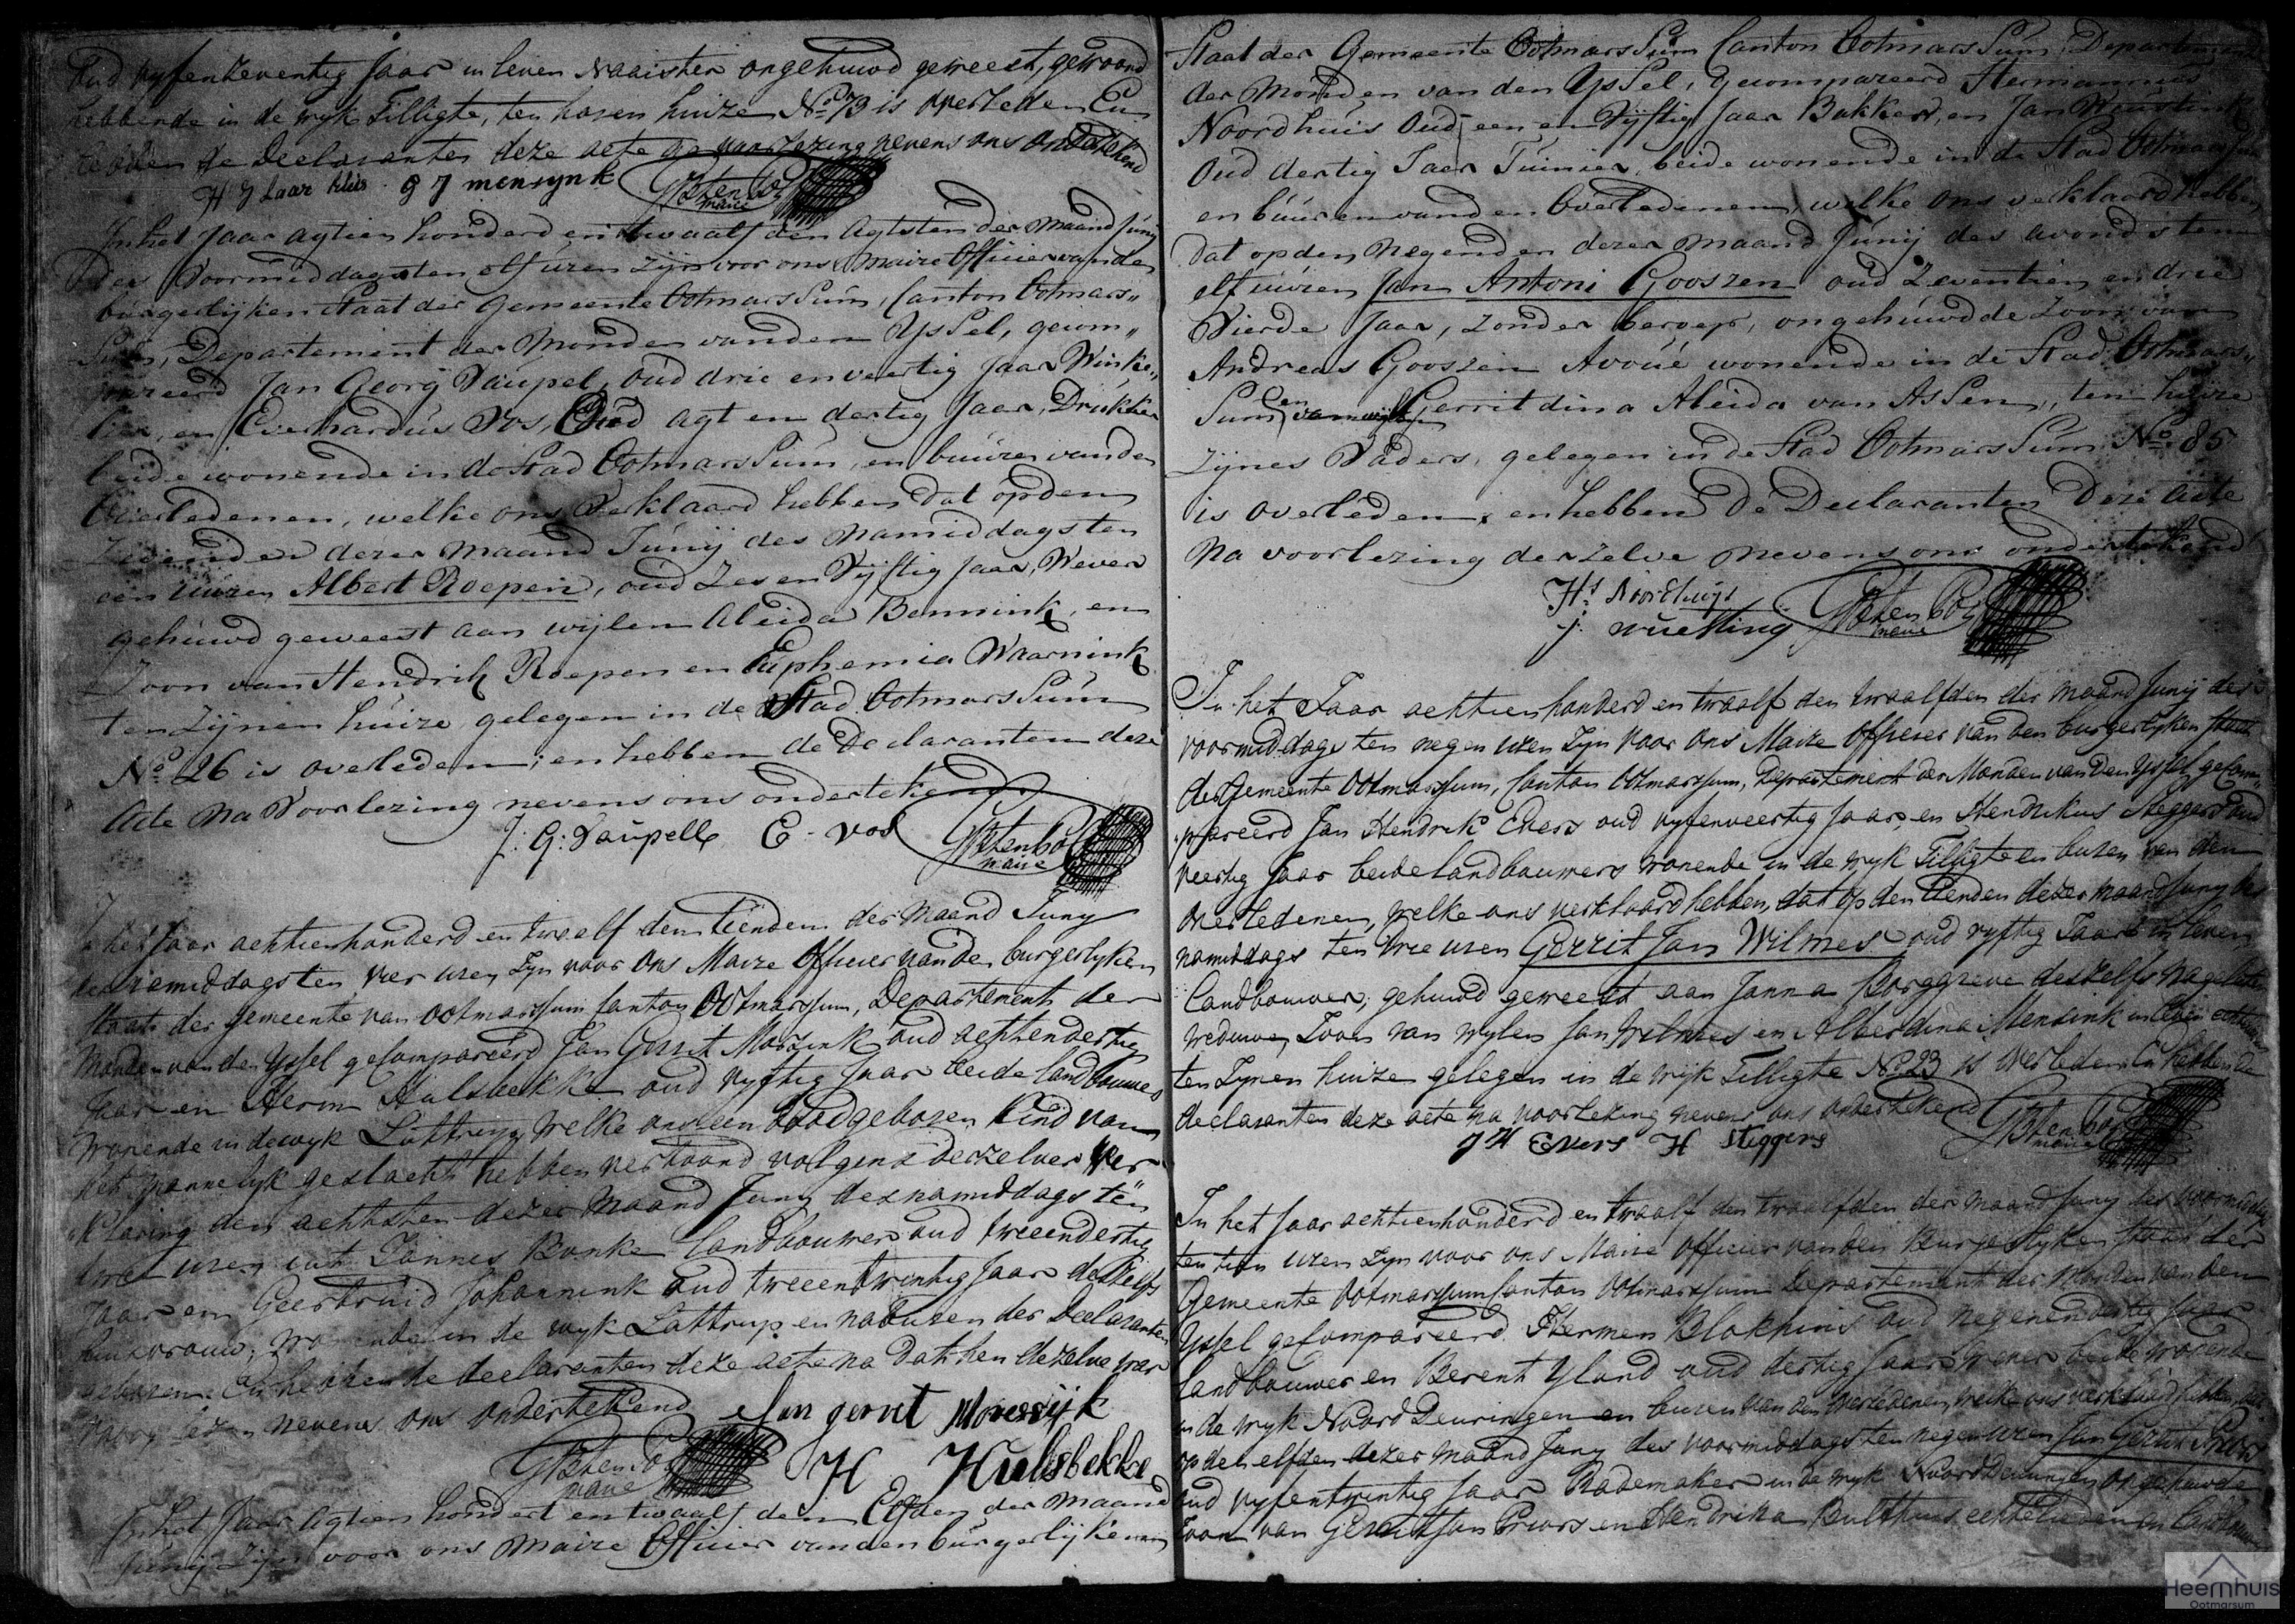 Oud vyfenzeventig Jaar in leven Naaister ongehuwd geweest, gewoond
hebbende in de wyk Tilligte, ten haren huize No 73 is overleden En
hebben de Declaranten deze acte na voorlezing nevens ons ondertekend
H J Laar huis G J mensynk
maire
In het Jaar agtien honderd en twaalf den Agtsten der maand Junij
des Voormiddags ten elf uren zijn voor ons Maire Officier van den
burgerlijken Staat der Gemeente Ootmarssum, Canton Ootmars„
Sum, Departement der Monden van den Yssel, gecom„
pareerd Jan Georg Paupel, oud drie en veertig Jaar Winke„
lier, en Everhardus Vos, Oud agt en dertig Jaar, Drukker
beide wonende in de Stad Ootmarssum, en buuren van den
Overledenen, welke ons Verklaard hebben dat op den
Zevenden dezer maand Junij des namiddags ten
een uuren Albert Roepen, oud Zes en Vijftig Jaar, Wever
gehuwd geweest aan wijlen Aleida Bennink, en
Zoon van Hendrik Roepen en Euphemia Waarnink
ten zijnen huize gelegen in de Stad Ootmarssum
No 26 is overleden; en hebben de Declaranten deze
Acte na Voorlezing nevens ons ondertekend
J: G: Paupell E. Vos
maire
In het Jaar achtienhonderd en twaalf den tienden der Maand Juny
des namiddags ten vier uren zyn voor ons Maire Officier van den burgerlyken
staat der gemeente van Ootmarssum Canton Ootmarssum, Departement der
Monden van den Yssel gecompareerd Jan Gerrit Morsink oud achtendertig
Jaar en Herm Hulsbekke oud vyftig Jaar beide landbouwers
wonende in de wyk Lattrup, welke ons een doodgeboren kind van
het mannelyk geslacht hebben vertoond volgens derzelver ver„
„klaring den achtsten dezer Maand Juny des namiddags ten
twee uren uit Jannes Bonke landbouwer oud tweendertig
Jaar en Geertruid Johannink oud tweeentwintig Jaar deszelfs
huisvrouw, wonende in de wyk Lattrup en naburen der Declaranten
geboren. En hebben de declaranten deze acte na dat hen dezelve was
voorgelezen nevens ons ondertekend
Jan gerret Morssijk
maire
H Hulsbekke
In het Jaar Agtien hondert en twaalf den Elfden der maand
Junij zijn voor ons Maire Officier van den burgerlijken
Staat der Gemeente Ootmarssum Canton Ootmarssum, Departement
der Monden van den Yssel, gecompareerd Hermannus
Noordhuis Oud een en Vijftig Jaar Bakker, en Jan
Oud dertig Jaar Tuinier, beide wonende in de Stad Ootmarssum
en buuren van den Overledenen, welke ons verklaard hebben
dat op den Negenden dezer maand Junij des avonds ten
elf uuren Jan Antoni Gooszen oud Zeventien en drie
Vierde Jaar, Zonder beroep, ongehuwd de Zoon van
Andreas Gooszen Avoué wonende in de Stad Ootmars„
Sum, en Gerritdina Aleida van Assen, ten huize
zijnes Vaders, gelegen in de Stad Ootmarssum No 85
is overleden; en hebben de Declaranten deze Acte
na voorlezing derzelve nevens ons ondertekend
Hs Noorthuijs
J: wuesting
maire
In het Jaar achtienhonderd en twaalf den twaalfden der maand Junij des
voormiddags ten negen uren Zyn voor ons Maire Officier van den burgerlyken staat
der Gemeente Ootmarssum, Canton Ootmarssum, Departement der Monden van Den Yssel gecom„
„pareerd Jan Hendrik Evers oud vyfenveertig Jaar, en Hendrikus Steggers oud
veertig Jaar beide landbouwers wonende in de wyk Tilligte en buren van den
overledenen, welke ons verklaard hebben, dat op den tienden dezer maand Juny des
namiddags ten drie uren Gerrit Jan Wilmes oud vyftig Jaar in leven
Landbouwer, gehuwd geweest aan Janna Borggreve deszelfs nagelaten
weduwe, Zoon van wylen Jan Wilmes en Alberdina Mensink in leven echtelieden
ten Zynen huize gelegen in de wijk Tilligte No 23 is overleden En hebben de
declaranten deze acte na voorlezing nevens ons ondertekend
J H Evers H Steggers
maire
In het Jaar achtienhonderd en twaalf den twaalfden der maand Juny des voormiddags
ten tien uren zyn voor ons Maire Officier van den Burgerlyken staat der
Gemeente Ootmarssum Canton Ootmarssum Departement der Monden van den
Yssel gecompareerd Hermen Blokhuis oud negenendertig Jaar
landbouwer en Berent Yland oud dertig Jaar wever beide wonende
in de wyk Noord Deuringen en buren van den overledenen, welke ons verklaard hebben, dat
op den elfden dezer maand Juny des voormiddags ten negen uren Jan Gerrit Priors
oud vyfentwintig Jaar Rademaker in de wyk Noord Deuringen ongehuwde
Zoon van Gerrit Jan Priors en Hendrika Bulthuis echtelieden en landbouwers
Heemhuis
Ootmarsum